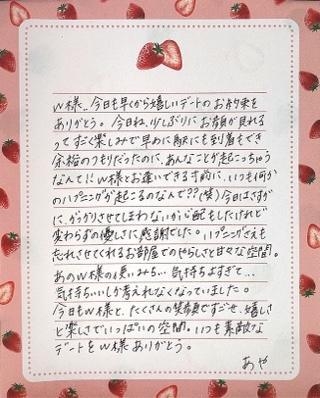 W様、今日も早くから嬉しいデートのお約束を
ありがとう。今日ね、少しぶりにお顔が見れる
ってすごく楽しみで早めに駅にも到着もでき
余裕のつもりだったのに、あんなことが起こっちゃう
なんて!!W様とお逢いできる寸前に、いつも何か
のハプニングが起こるのなんで??(笑)今日はさすが
に、がっかりさせてしまわないか心配もしたけれど
変わらずの優しさに感謝でした。ハプニングさえも
忘れさせてくれるお部屋でのやらしさと甘々な空間。
あのW様の 気持ちよすぎて…
気持ちいいしか考えれなくなっていました。
今日もW様と、たくさんの笑顔ですごせ、嬉しさ
と楽しさでいっぱいの空間。いつも素敵な
デートをW様ありがとう。
あや